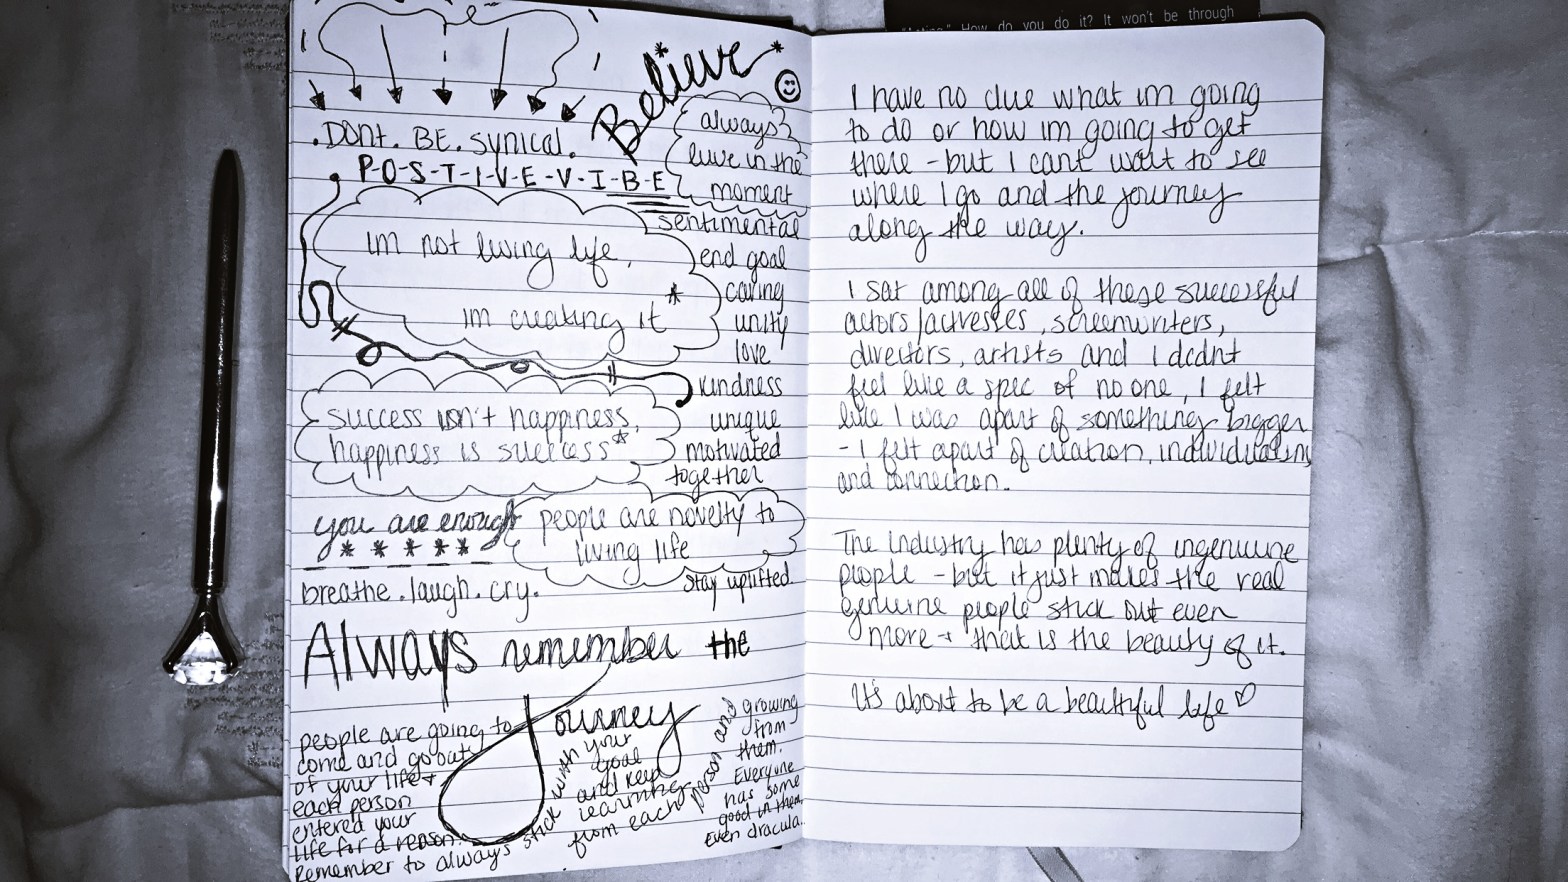 How do you do it? It won't be through
Believe
.DOnt. BE. synical.
P-O-S-T-I-V-E-V-I-B-E
always
live in the
moment
im not living life,
im creating it
sentimental
end goal
caring
unity
love
kindness
unique
motivated
together
success isn't happiness,
happiness is success
you are enough
people are novelty to
living life
stay uplifted
breathe.laugh.cry.
Always remember the
Journey
people are going to
come and go out
of your life +
each person
entered your
life for a reason.
Remember to always stick with your
goal
and keep
learning
from each person and growing
from
them.
Everyone
has some
good in them,
Even dracula.
I have no clue what im going
to do or how im going to get
there - but I cant wait to see
where I go and the journey
along the way.
I sat among all of these successful
actors/actresses, screenwriters,
directors, artists and I didnt
feel like a spec of no one, I felt
like I was apart of something bigger
- I felt apart of creation, individuality
and connection.
The industry has plenty of ingenuine
people - but it just makes the real
genuine people stick out even
more + that is the beauty of it.
It's about to be a beautiful life♡